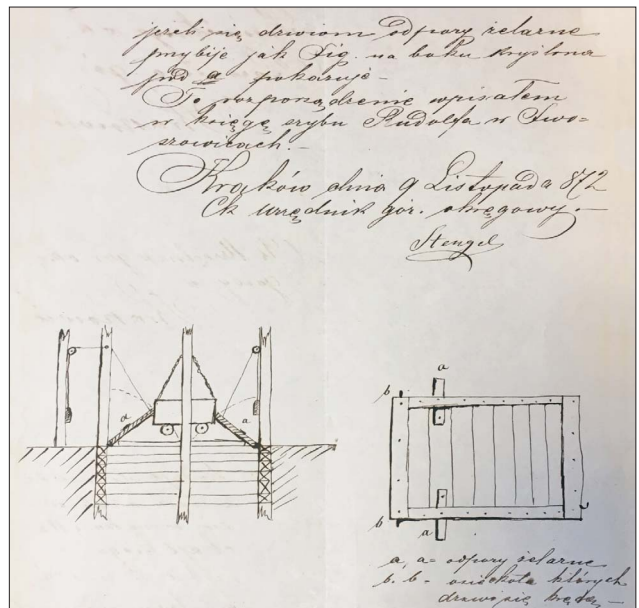 jeżeli się drzwiom odpory żelazne
przybije jak Fig. na boku kryślona
pod a pokazuje –
To rozporządzenie wpisałem
w księgę szybu Rudolfa w Swo-
szowicach. –
Kraków dnia 9 Listopada 872
Ck urzędnik gór. okręgowy. –
Stengel
a
a
a
b
b
a
a, a = odpory żelazne
b, b = osie koła których
drzwi się kręcą, –